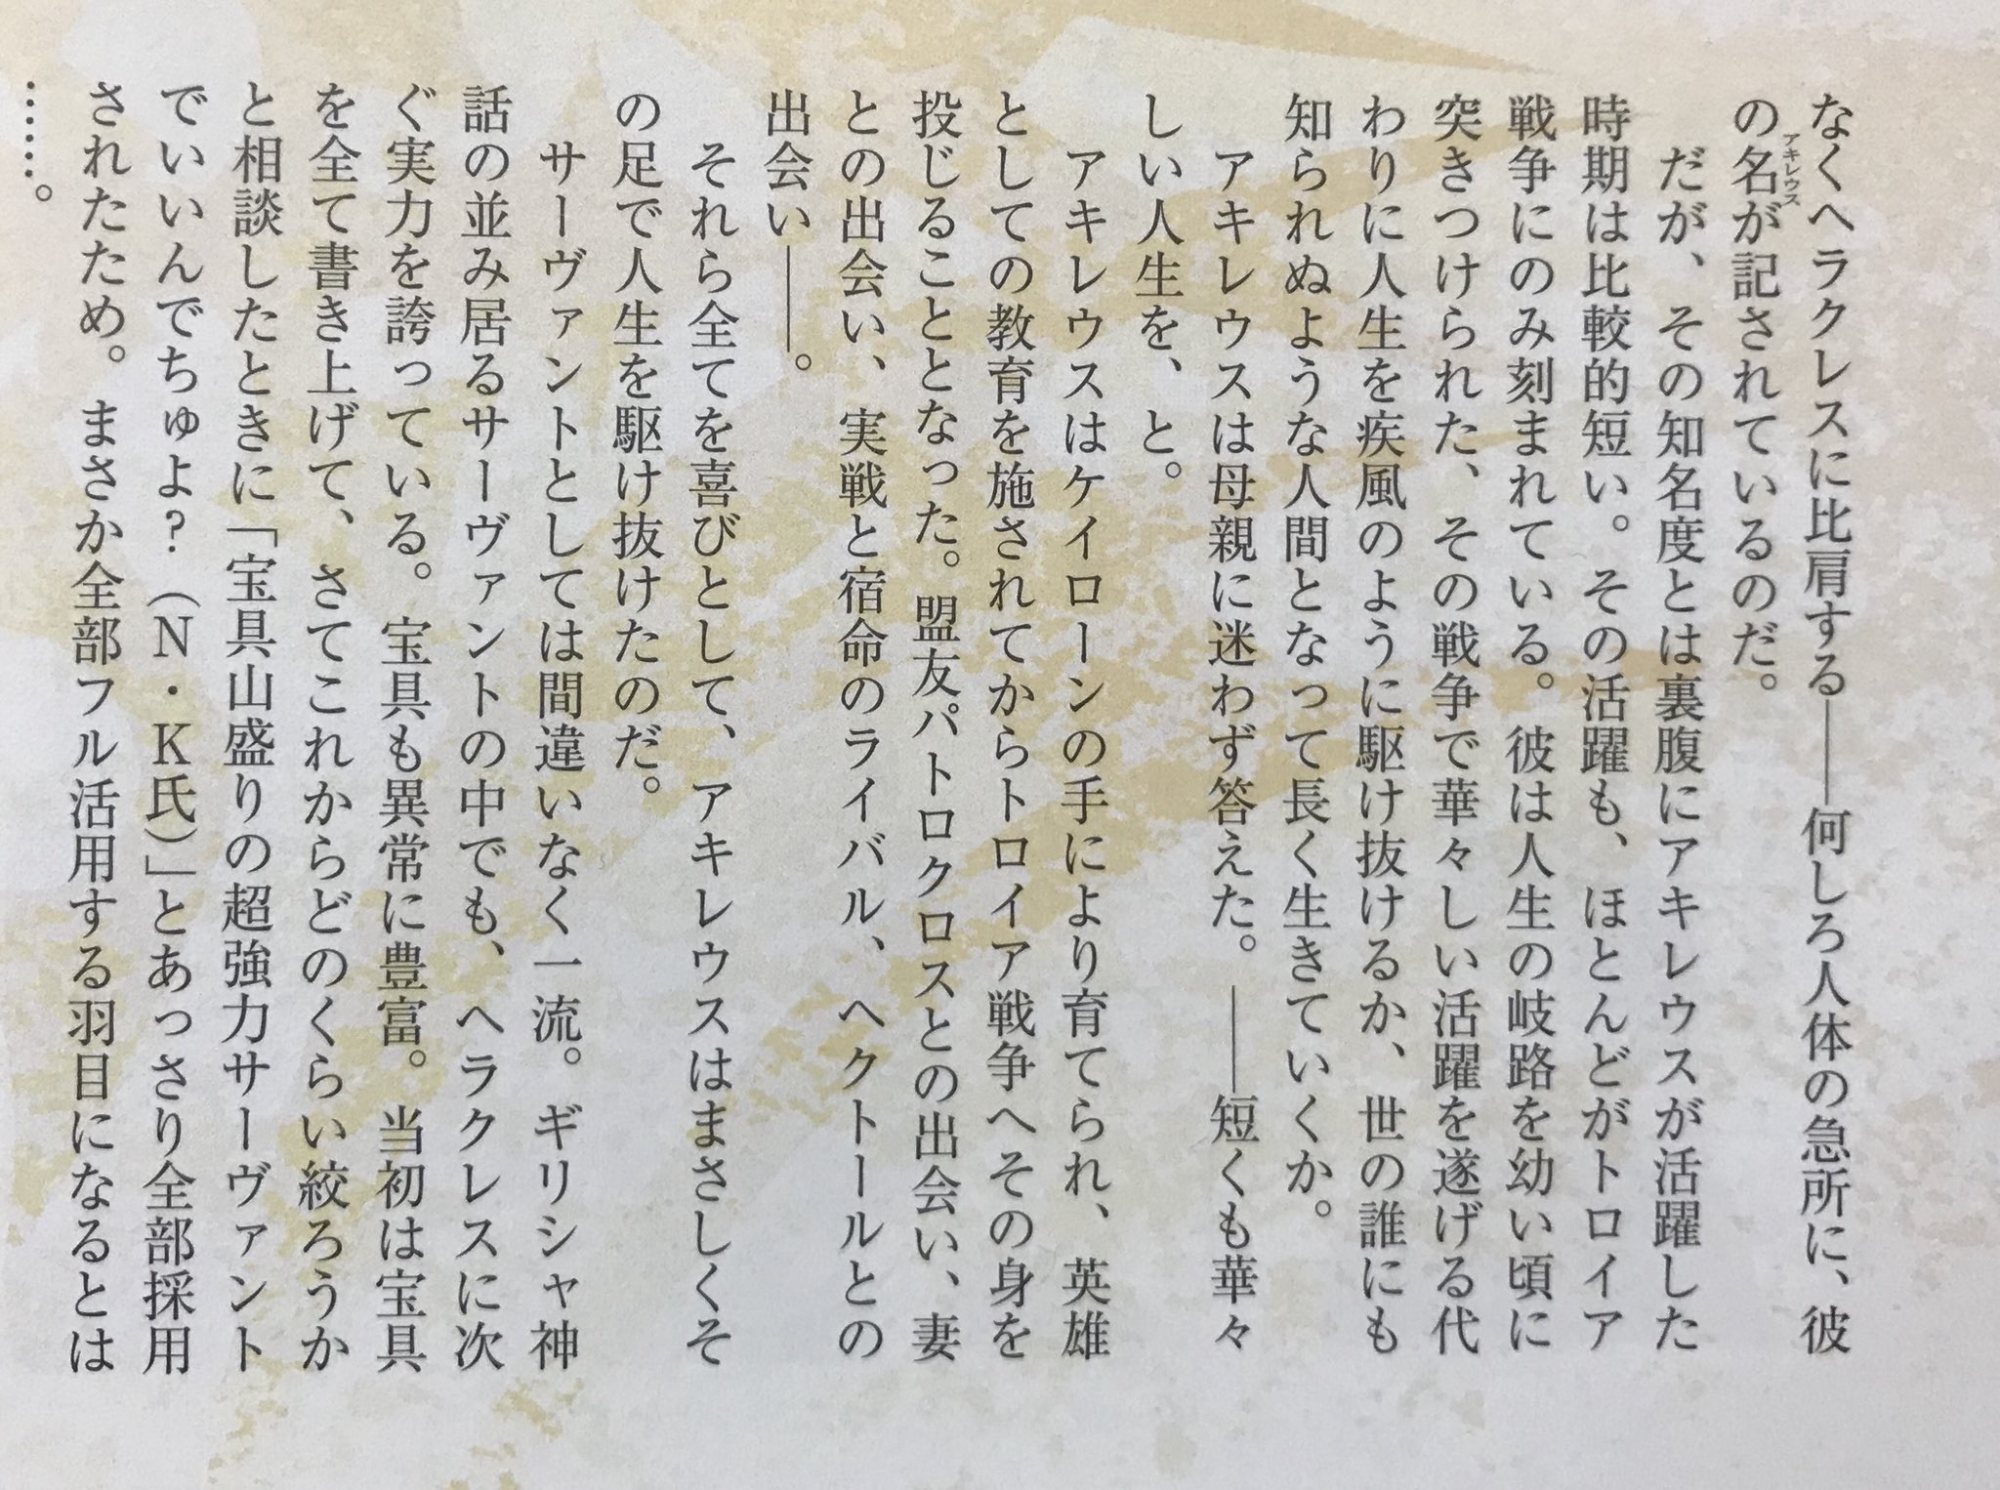 なくヘラクレスに比肩する――何しろ人体の急所に、彼
の名が記されているのだ。
アキレウス
だが、その知名度とは裏腹にアキレウスが活躍した
時期は比較的短い。その活躍も、ほとんどがトロイア
戦争にのみ刻まれている。彼は人生の岐路を幼い頃に
突きつけられた、その戦争で華々しい活躍を遂げる代
わりに人生を疾風のように駆け抜けるか、世の誰にも
知られぬような人間となって長く生きていくか。
アキレウスは母親に迷わず答えた。――短くも華々
しい人生を、と。
アキレウスはケイローンの手により育てられ、英雄
としての教育を施されてからトロイア戦争へその身を
投じることとなった。盟友パトロクロスとの出会い、妻
との出会い、実戦と宿命のライバル、ヘクトールとの
出会い――。
それら全てを喜びとして、アキレウスはまさしくそ
の足で人生を駆け抜けたのだ。
サーヴァントとしては間違いなく一流。ギリシャ神
話の並み居るサーヴァントの中でも、ヘラクレスに次
ぐ実力を誇っている。宝具も異常に豊富。当初は宝具
を全て書き上げて、さてこれからどのくらい絞ろうか
と相談したときに「宝具山盛りの超強力サーヴァント
でいいんでちゅよ?（N・K氏）」とあっさり全部採用
されたため。まさか全部フル活用する羽目になるとは
……。